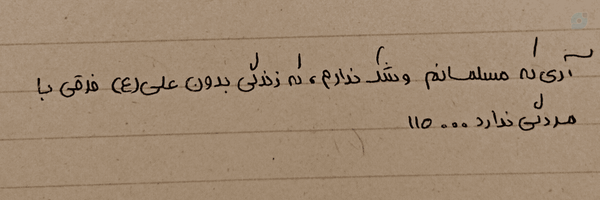 آری که مسلمانم و شک ندارم، که زندگی بدون علی(ع) فرقی با
مردگی ندارد ... ۱۱۰